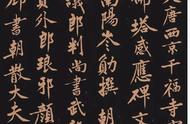 大唐西京千福寺
佛塔感應碑文
南陽岑勛撰朝
議郎判尚書武
外郎琅邪顏
書朝散大夫